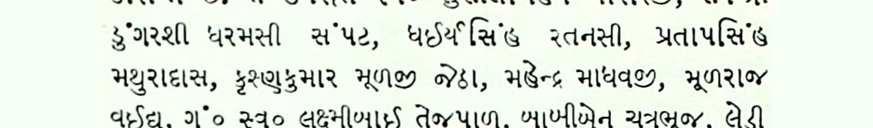 ડુંગરશી ધરમસી સંપટ, ધઈર્યસિંહ રતનસી, પ્રતાપસિંહ
મથુરાદાસ, કૃષ્ણકુમાર મૂળજી જેઠા, મહેન્દ્ર માધવજી, મૂળરાજ
વઈદ્ય, ગં૦ સ્વ૦ લક્ષ્મીબાઈ તેજપાળ, બાબીબેન ચત્રભૂજ, લેડી